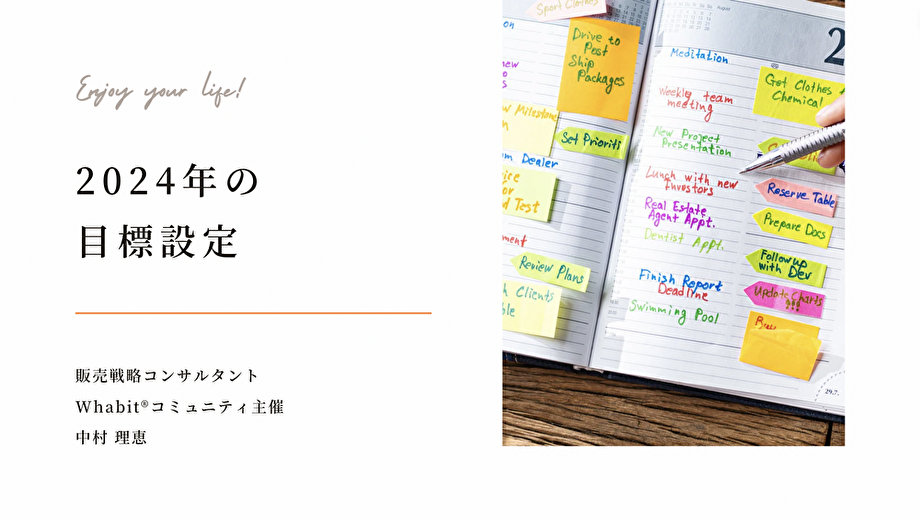 Enjoy your life!
2024年の
目標設定
販売戦略コンサルタント
Whabit®コミュニティ主催
中村 理恵
Sport Clothes
Drive to
Post
Ship
Packages
Set Prioriti
Dealer
Test
Review Plans
Clients
August
2
Meditation
Weekly team
meeting
New Project
Presentation
Lunch with new
Investors
Real Estate
Agent Appt.
Dentist Appt.
Finish Report
Deadline
Swimming Pool
Get Clothes
Chemical
Reserve Table
Prepare Docs
Followup
with Dev
Update Charts
!!!
29.7.